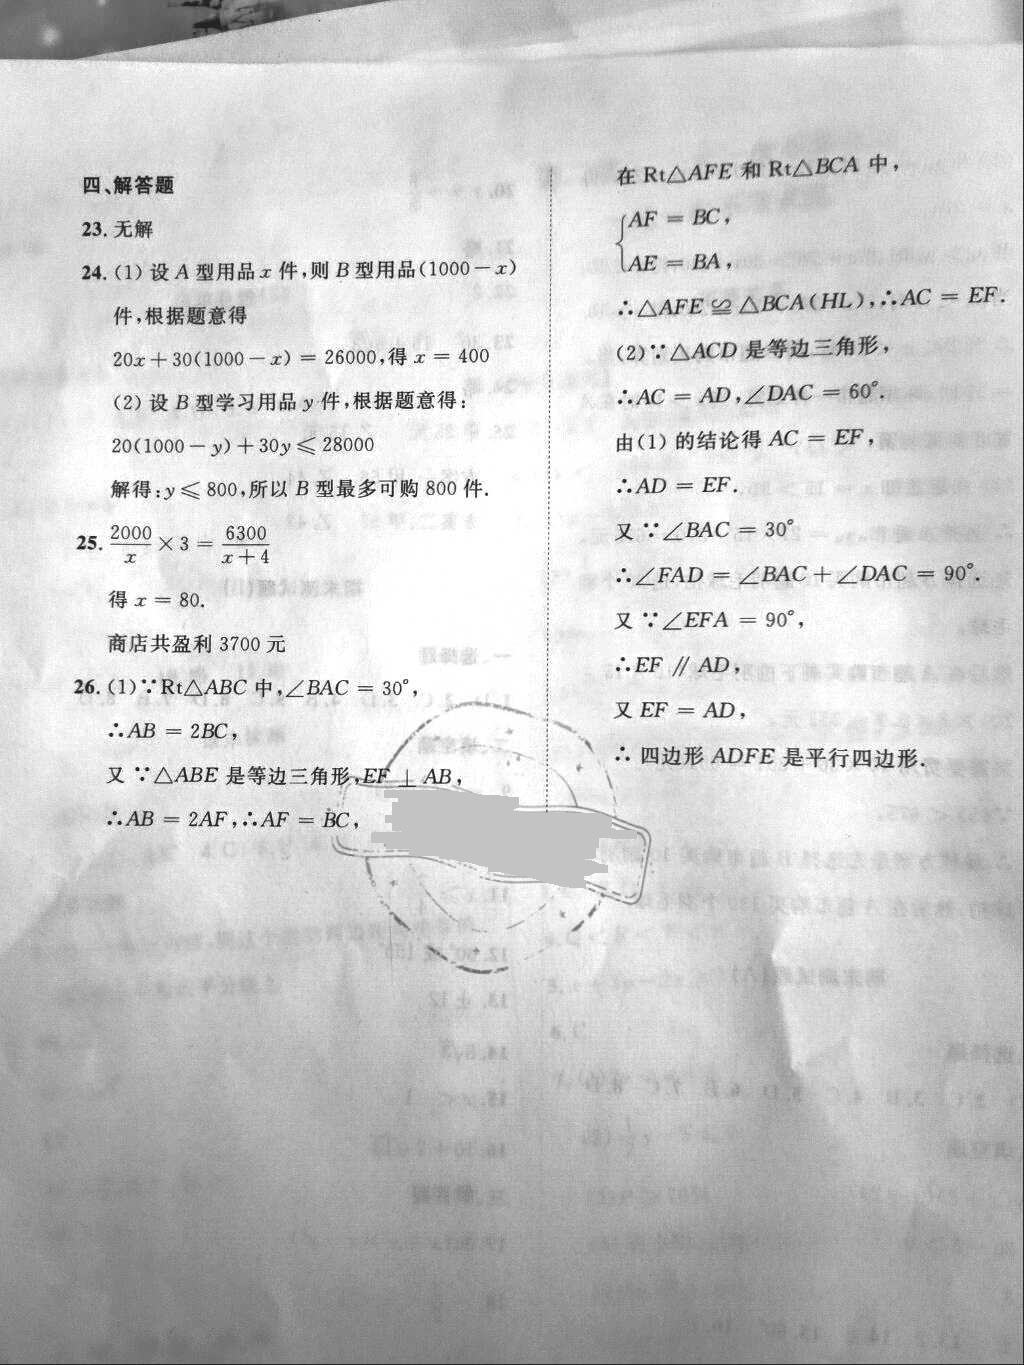 四、解答题
23. 无解
24. (1) 设 A 型用品 x 件,则 B 型用品(1000－x)
件,根据题意得
20x＋30(1000－x) ＝ 26000,得 x ＝ 400
(2) 设 B 型学习用品 y 件,根据题意得:
20(1000－y)＋30y ⩽ 28000
解得:y ⩽ 800,所以 B 型最多可购 800 件.
25. 2000/x × 3 ＝ 6300/(x＋4)
得 x ＝ 80.
商店共盈利 3700 元
26. (1)∵Rt△ABC 中,∠BAC ＝ 30°,
∴AB ＝ 2BC,
又 ∵△ABE 是等边三角形,EF ⊥ AB,
∴AB ＝ 2AF,∴AF ＝ BC,
在 Rt△AFE 和 Rt△BCA 中,
{AF ＝ BC,
AE ＝ BA,
∴△AFE ≌ △BCA(HL),∴AC ＝ EF.
(2)∵△ACD 是等边三角形,
∴AC ＝ AD,∠DAC ＝ 60°.
由(1) 的结论得 AC ＝ EF,
∴AD ＝ EF.
又 ∵∠BAC ＝ 30°
∴∠FAD ＝ ∠BAC＋∠DAC ＝ 90°.
又 ∵∠EFA ＝ 90°,
∴EF ∥ AD,
又 EF ＝ AD,
∴ 四边形 ADFE 是平行四边形.